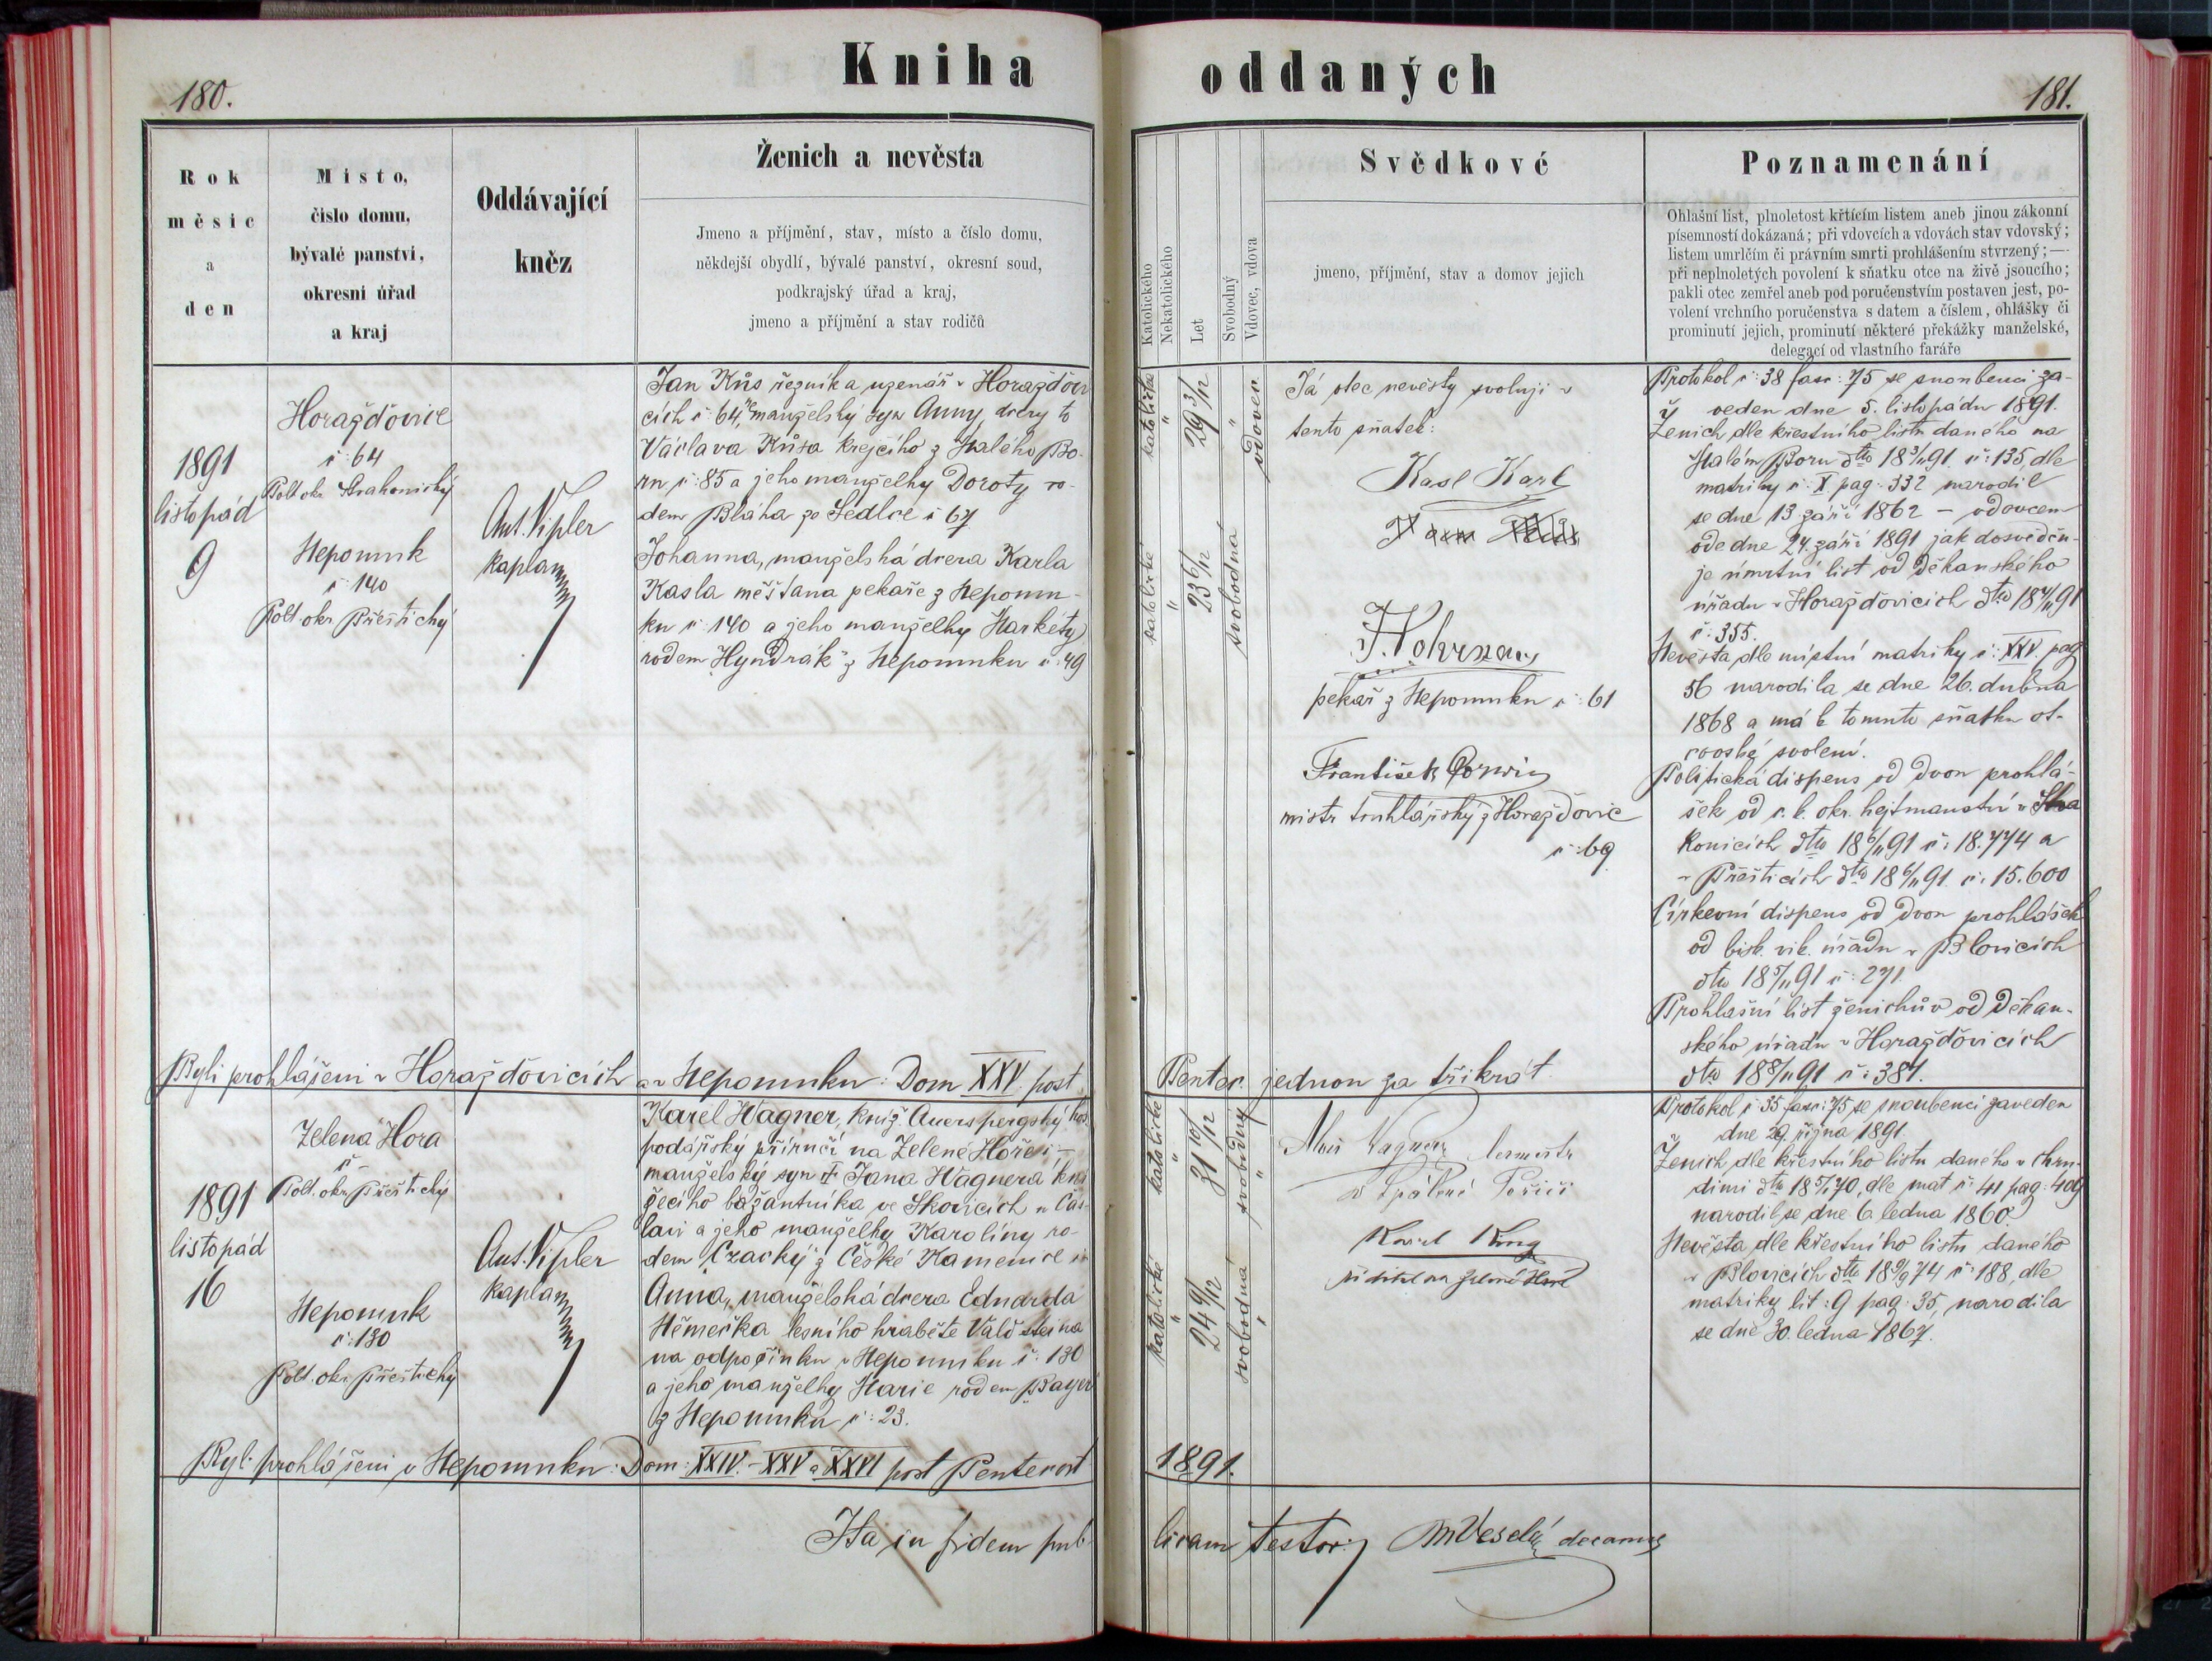 180.
Kniha
Rok
měsíc
a
den
Místo,
číslo domu,
bývalé panství,
okresní úřad
a kraj
Oddávající
kněz
Ženich a nevěsta
Jmeno a příjmění, stav, místo a číslo domu,
někdejší obydlí, bývalé panství, okresní soud,
podkrajský úřad a kraj,
jmeno a příjmění a stav rodičů
1891
listopád
9
Horažďovice
č: 64
Polt okr. Strakonický
Nepomuk
č: 140
Polt. okr. Přeštický
Ant. Vipler
kaplan
Jan Kůs řezník a uzenář v Horažďovi
cích č: 64, manželský syn Anny, dcery
Václava Kůsa krejčího z Malého Bo-
ru č: 85 a jeho manželky Doroty ro-
dem Bláha ze Sedlce č 67
Johanna, manželská dcera Karla
Kasla měšťana pekaře z Nepomu-
ku č: 140 a jeho manželky Markéty
rodem Hyndrák z Nepomuku č: 49
Byli prohlášeni v Horažďovicích a v Nepomuku: Dom XXV. post
1891
listopád
16
Zelená Hora
č -
Polt. okr. Přeštický
Nepomuk
č: 130
Polt. okr. Přeštický
Ant. Vipler
kaplan
Karel Wagner, kníž. Auerspergský hos
podářský příručí na Zelené Hoře
manželský syn Jana Wagnera kní
žecího bažantníka ve Skovicích u Čás-
lavi a jeho manželky Karolíny ro-
dem Czacký z České Kamenice
Anna, manželská dcera Eduarda
Němečka lesního hraběte Valdšteina
na odpočinku v Nepomuku č: 130
a jeho manželky Marie rodem Bayer
z Nepomuku č: 23.
Byli prohlášeni v Nepomuku: Dom: XXIV. - XXV a XXVI post Pentecost
Ita in fidem pub
oddaných
181.
Katolického
Nekatolického
Let
Svobodný
Vdovec, vdova
Svědkové
jmeno, příjmění, stav a domov jejich
Poznamenání
Ohlašní list, plnoletost křtícím listem aneb jinou zákonní
písemností dokázaná; při vdovcích a vdovách stav vdovský;
listem umrlčím či právním smrti prohlášením stvrzený; —
při neplnoletých povolení k sňatku otce na živě jsoucího;
pakli otec zemřel aneb pod poručenstvím postaven jest, po-
volení vrchního poručenstva s datem a číslem, ohlášky či
prominutí jejich, prominutí některé překážky manželské,
delegací od vlastního faráře
katolické
"
29 3/12
"
vdovec
katolické
"
23 6/12
svobodná
Já otec nevěsty svoluji v
tento sňatek:
Kasl Karl
pekař z Nepomuku č: 61
František
mistr truhlářský z Horažďovic
č: 69
Protokol č: 38 fasc: 75 se snoubenci za-
veden dne 5. listopadu 1891.
Ženich dle křestního listu daného na
Malém Boru dto 18 3/11 91. č: 135, dle
matriky č: X pag: 332 narodil
se dne 13 září 1862 - vdovcem
ode dne 24. září 1891 jak dosvědču-
je úmrtní list od Děkanského
úřadu v Horažďovicích dto 18 7/11 91
č: 355.
Nevěsta dle místní matriky č: XXV. pag
56 narodila se dne 26. dubna
1868 a má k tomuto sňatku ot-
covské svolení.
Politická dispens od dvou prohlá-
šek od c. k. okr. hejtmanství v Stra
konicích dto 18 6/11 91 č: 18.774 a
v Přešticích dto 18 6/11 91. č: 15.600
Církevní dispens od dvou prohlášek
od bisk. vik. úřadu v Blovicích
dto 18 5/11 91 č: 271.
Prohlašní list ženichův od Děkan-
ského úřadu v Horažďovicích
dto 18 8/11 91 č: 387.
Pentec. jednou za třikrát
katolické
"
31 10/12
svobodný
"
katolické
"
24 9/12
svobodná
"
Alois Wagner
v Spálené Poříčí
Karel King
ředitel na Zelené Hoře
Protokol č 35 fasc: 75 se snoubenci zaveden
dne 29. října 1891.
Ženich dle křestního listu daného v Chru-
dimi dto 18 5/7 70, dle mat č: 41 pag: 409
narodil se dne 6 ledna 1860.
Nevěsta dle křestního listu daného
v Blovicích dto 18 9/9 74 č: 188, dle
matriky lit: 9 pag: 35, narodila
se dne 30. ledna 1867.
1891.
licam testor: M Veselý decanus